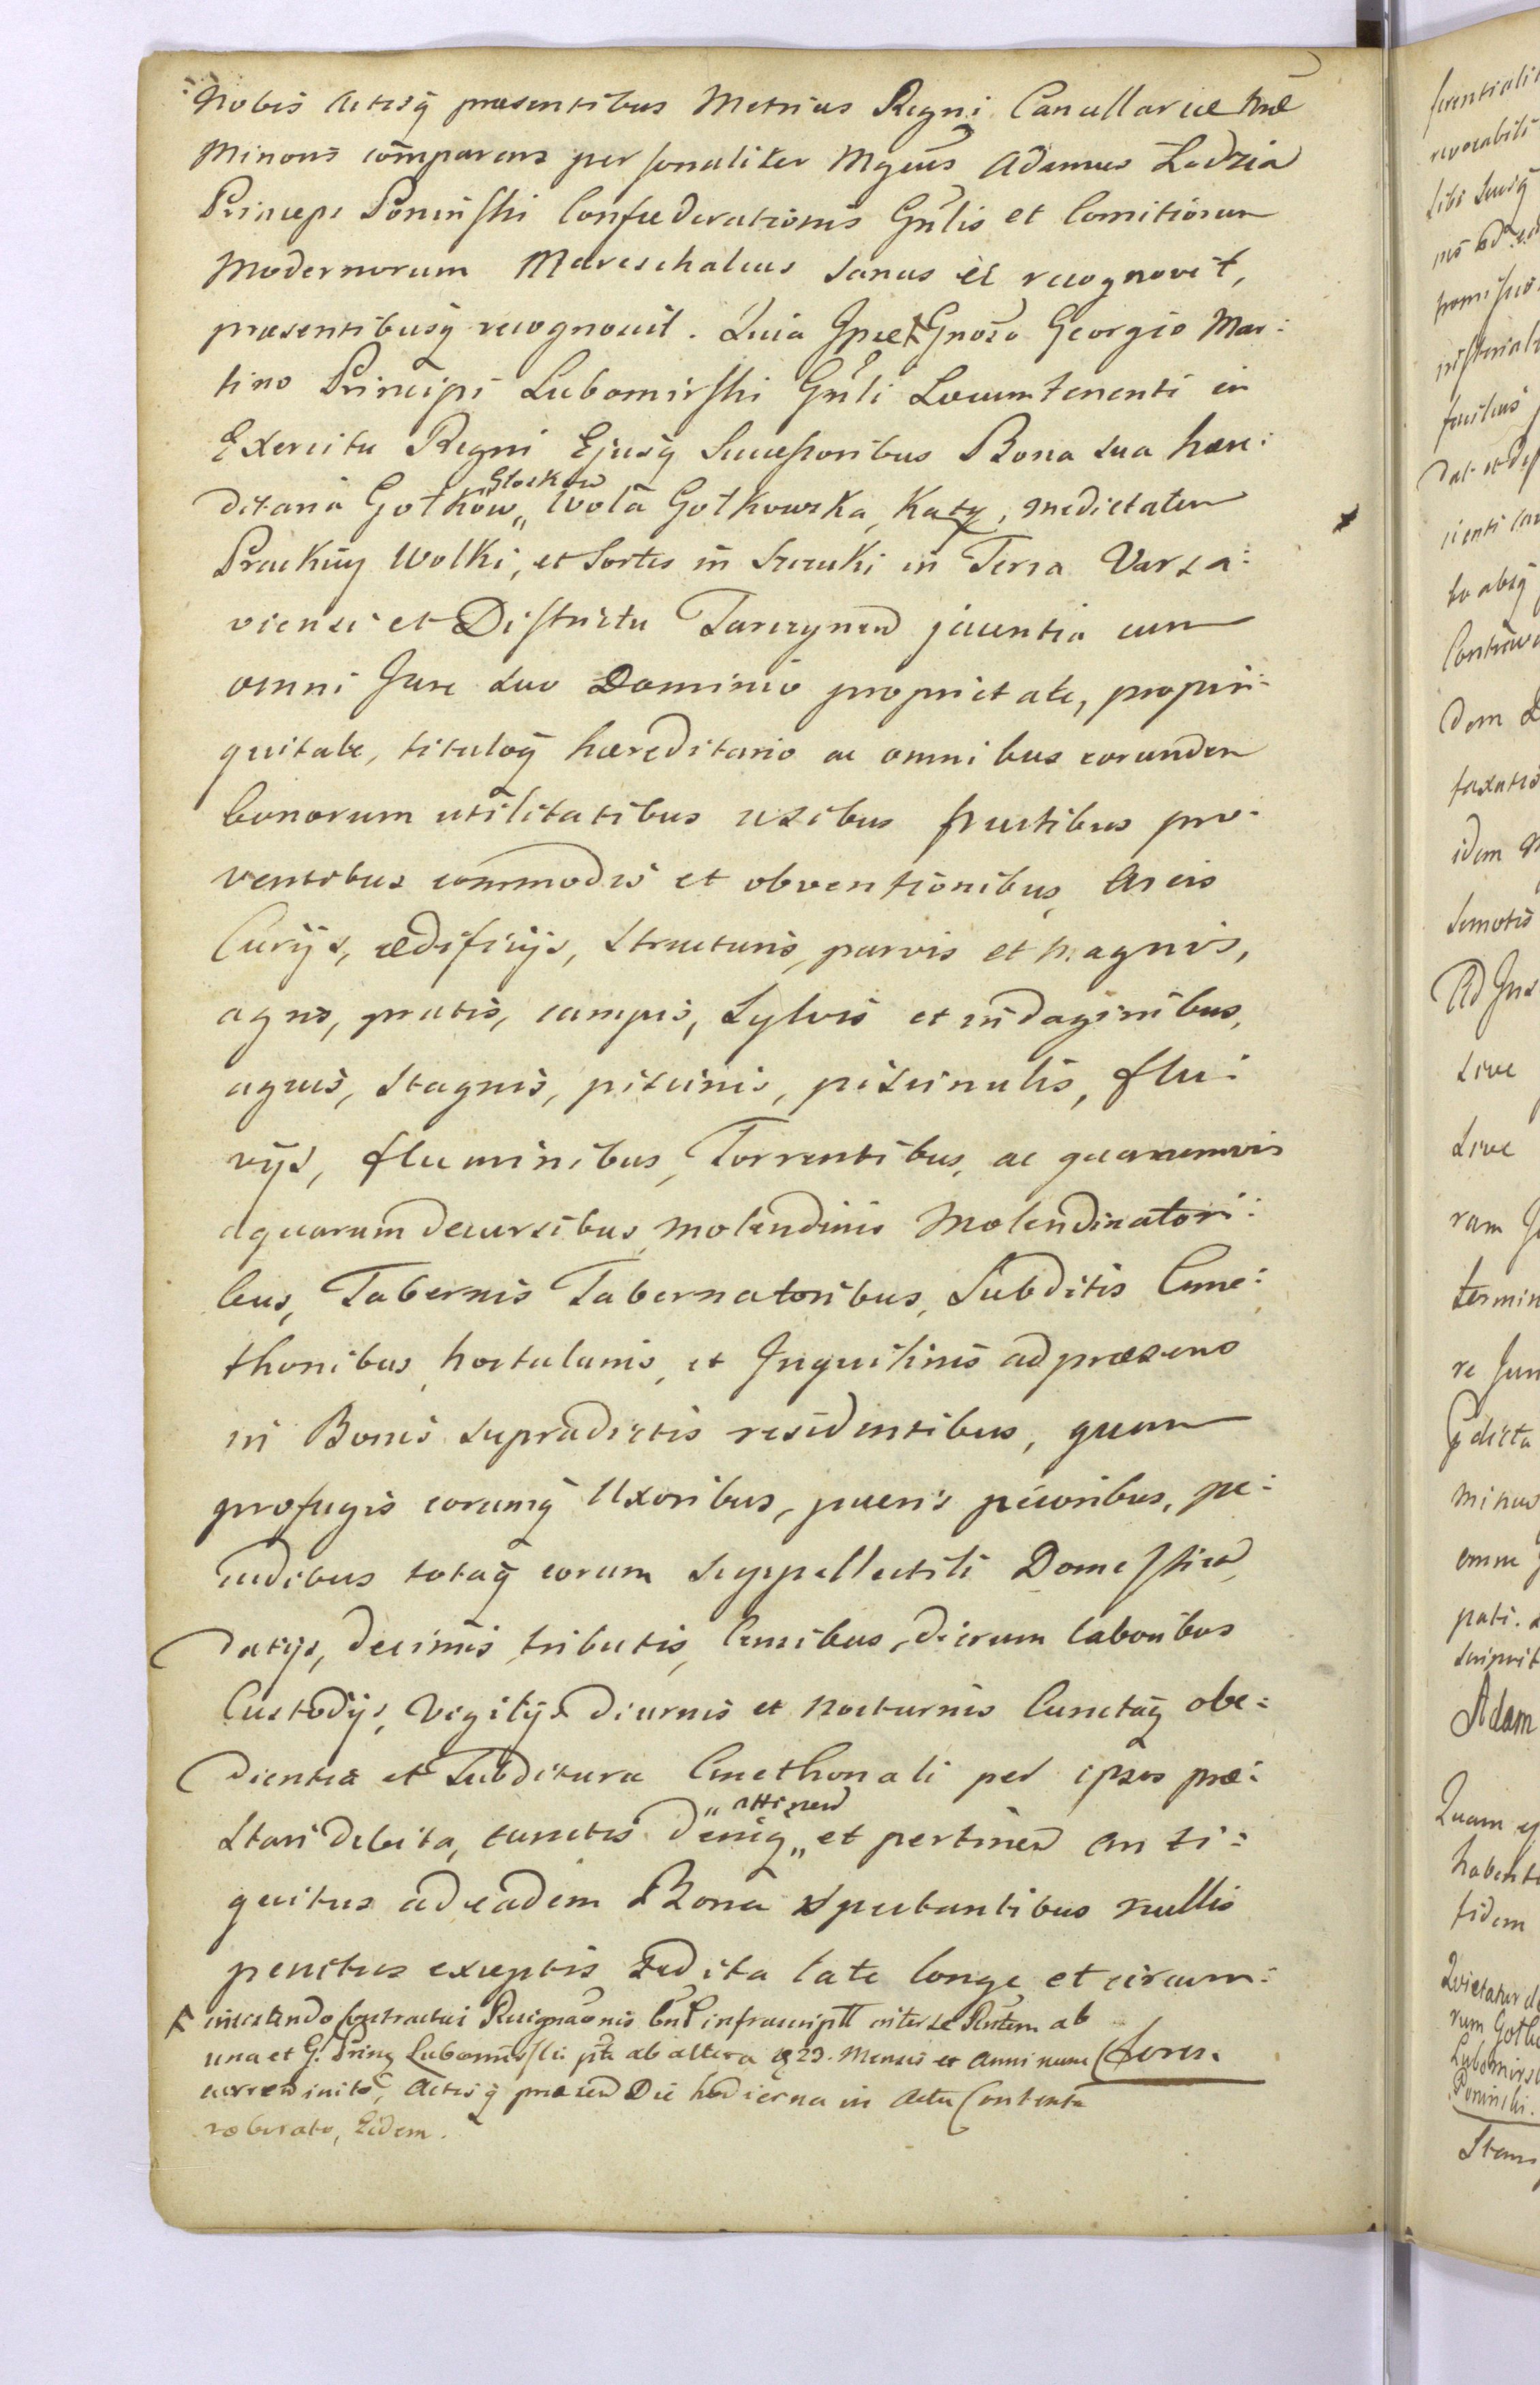 Nobis Actisq̃ praesentibus Metrices Regni Cancellariae
Minoris comparens personaliter Mgcus Adamus Lodzia
Princeps Poninski Confæderationis Gnlis et Comitiorum
Modernorum Mareschalcus sanus &c recognovit,
praesentibusq̃ recognoscit. Quia Ipse Ŧ Gnoso Georgio Mar:
tino Principi Lubomirski Gnli Locumtenenti in
Exercitu Regni Ejusq̃ Succeſsoribus Bona sua hære:
Gloskow
ditaria Gotkow,, Wola Gotkowska, Katy, medietatem
Wolki, et Sortes in in Terra Varsa:
viensi et Districtu jacentia cum
omni Jure suo Dominio proprietate, propin:
quitate, tituloq̃ hæreditario ac omnibus eorundem
bonorum utilitatibus usibus fructibus pro:
ventibus commodis et obventionibus, Areis
Curijs, ædificijs, structuris, parvis et magnis,
agris, pratis, campis, Sylvis et indaginibus,
aquis, stagnis, piscinis, piscinulis, flu:
vijs, fluminibus, Torrentibus, ac quarumvis
aquarum decursibus, molendinis Molendinatori:
bus, Tabernis Tabernatoribus, Subditis Cme:
thonibus, hortulanis, et Inquilinis ad præsens
in Bonis supradictis residentibus, quam
profugis eorumq̃ Uxoribus, pueris pecoribus, pe:
cudibus totaq̃ eorum suppellectili Domestica,
datijs, decimis, tributis, Censibus, dierum laboribus
Custodijs, Vigilijs diurnis et nocturnis Cunctaq̃ obe:
dientia et Subditura Cmethonali per ipsos præ:
,, attinen
stari debita, cunctis deniq̃,, et pertinen anti:
quitus ad eadem Bona spectantibus nullis
penitus exceptis ita late longe et circum:
Ŧ Contractui Resignaonis infrascriptt inter se Rntem ab
una et G. Princ Lubomirski pte ab altera 23. Mensis et Anni nunc
inito, Actisq̃ Die hodierna in Actu Contenta
roborato, Eidem.
feren.